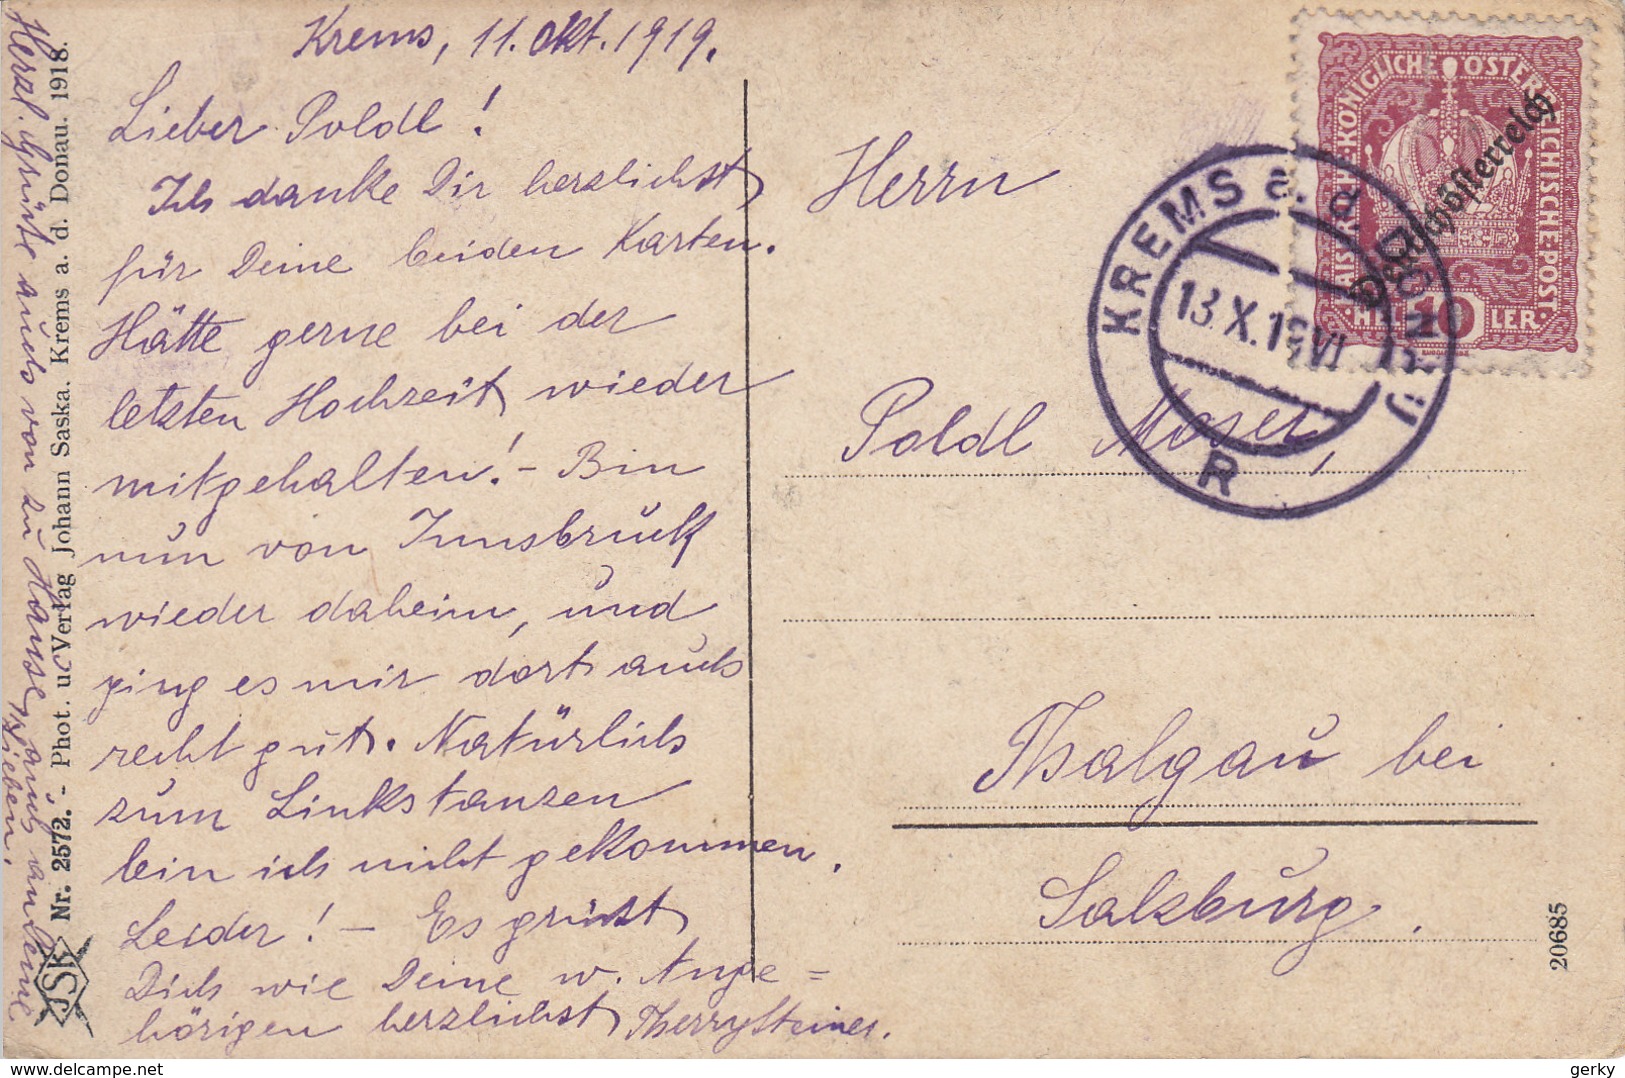 Krems, 11. Okt. 1919.
Lieber Poldl!
Ich danke Dir herzlichst
für Deine beiden Karten.
Hätte gerne bei der
letzten Hochzeit wieder
mitgehalten! - Bin
nun von Innsbruck
wieder daheim, und
ging es mir dort auch
recht gut. Natürlich
zum Linkstanzen
bin ich nicht gekommen.
Leider! - Es grüsst
Dich wie Deine w. Ange=
hörigen herzlichst
Herzl. Grüße auch von zu Hause, auch an Deine
Lieben.
Nr. 2572. - Phot. u. Verlag Johann Saska. Krems a. d. Donau. 1918.
JSK
Herrn
Poldl Moser,
Thalgau bei
Salzburg.
KAISERLICHE KÖNIGLICHE ÖSTERREICHISCHE POST
Deutschösterreich
HELLER 10
KREMS a. d. DONAU
13. X. 19 VI
R
20685
delcampe.net
gerky